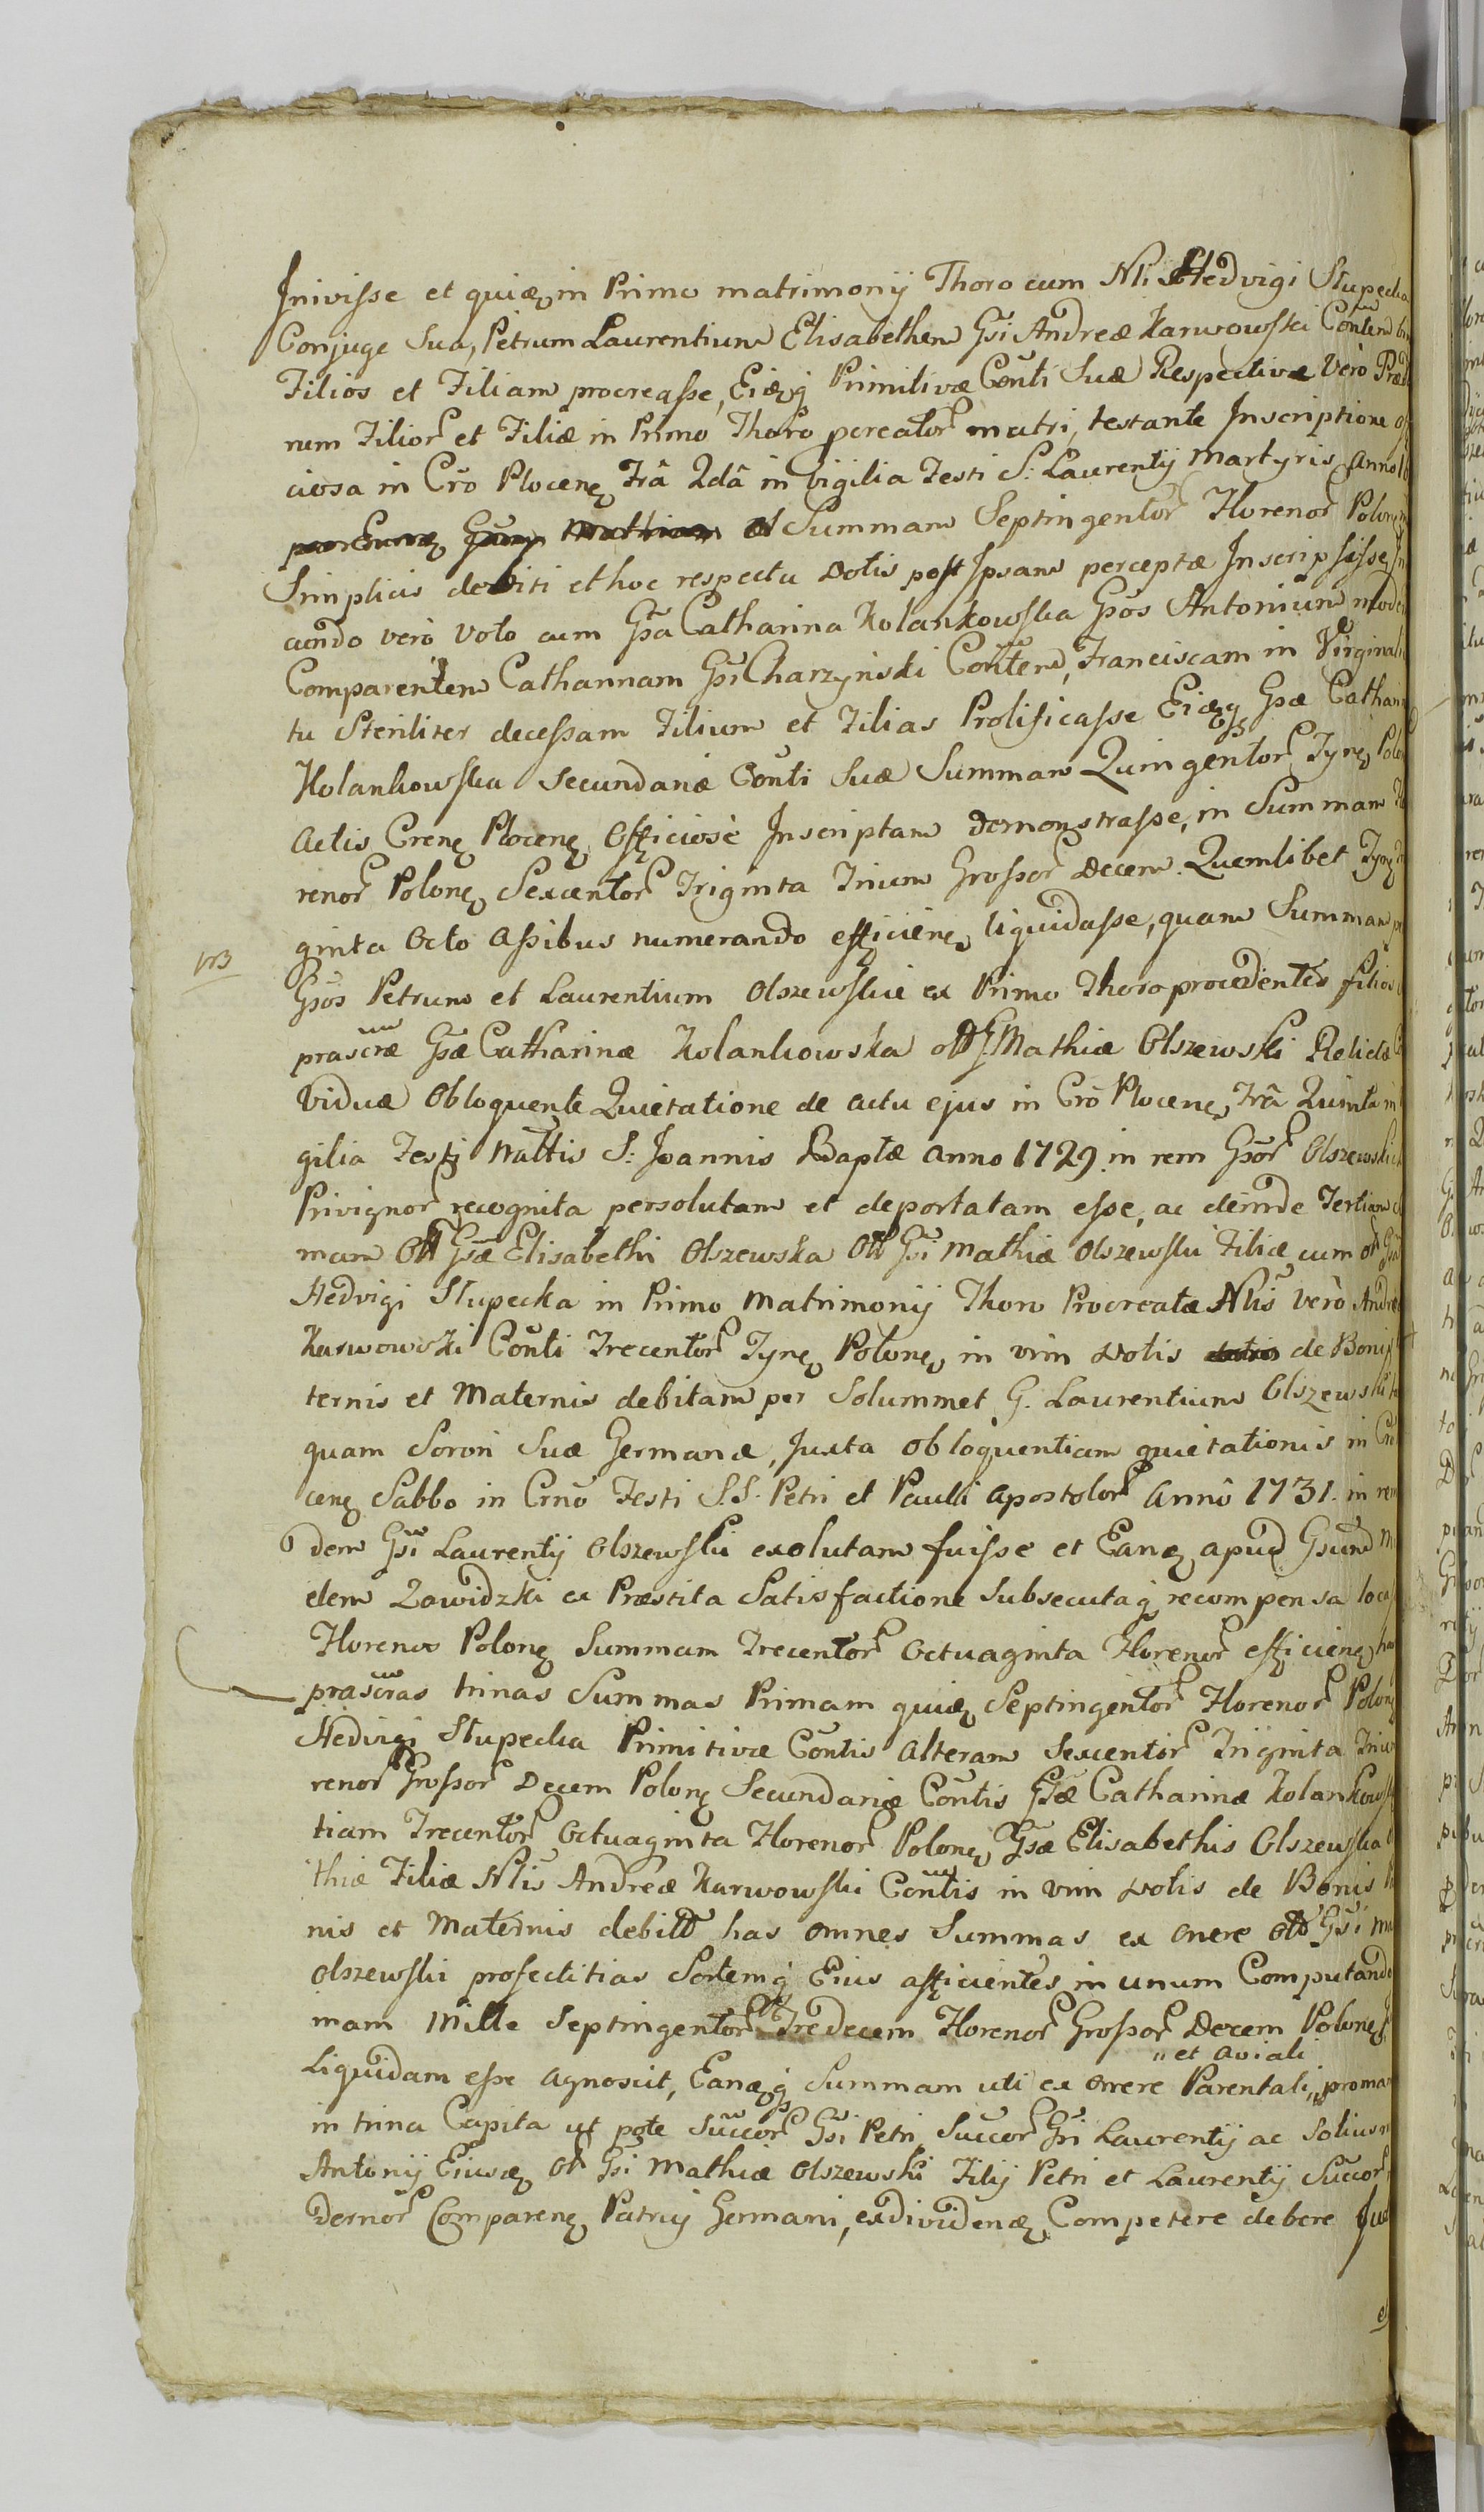 Inivisse et quidem in Primo matrimonij Thoro cum Nli Hedvigi Słupecka
Conjuge Sua, Petrum Laurentium Elisabetham Gsi Andreæ Karwowski Contem
Filios et Filiam procreasse, Eidq Primitivæ Conti Suæ Respective Vero
num Filior et Filiæ in Primo Thoro pcreator matri, testante Inscriptione
ciosa in Cro Plocen Fra 2da in Vigilia Festi S: Laurentij Martyris Anno
Summam Septingentor Florenor Polon
Simplicis debiti et hoc respectu Dotis post Ipsam perceptæ Inscripsisse
cundo vero Voto cum Gsa Catharina Kolankowska Gsos Antonium
Comparentem Catharinam Gsi Charzynski Contem, Franciscam in Virginali
tu Steriliter decessam Filium et Filias Prolificasse Eidq Gsæ Cathari
Kolankowska Secundariæ Conti Suæ Summam Quingentor Tyn Polon
Actis Cren Plocen Officiose Inscriptam demonstrasse, in Summam
renor Polon Sexcentor Triginta Trium Grossor Decem. Quemlibet Tyn
ginta Octo Assibus numerando efficien liquidasse, quam Summam
NB
Gsos Petrum et Laurentium Olszewskie ex Primo Thoro procedentes filios
præscræ Gsæ Catharinæ Kolankowska olim G. Mathiæ Olszewski Relictæ
Viduæ Obloquente Quietatione de actu ejus in Cro Plocen, Fra Quinta in
gilia Festi Nattis S: Joannis Baptæ Anno 1729. in rem Gsor Olszewskich
Privignor recognita persolutam et deportatam esse, ac deinde Tertiam
mam Olim Gsæ Elisabethi Olszewska Olim Gsi Mathiæ Olszewski Filiæ cum
Hedvigi Słupecka in Primo Matrimonij Thoro Procreatæ Nlis vero Andreæ
Karwowski Conti Trecentor Tyn Polon in vim Dotis de Bonis
ternis et Maternis debitam per Solummet G. Laurentium Olszewski
quam Sorori Suæ Germanæ, Juxta obloquentiam quietationis in
cen Sabbo in Crno Festi S.S. Petri et Pauli Apostolor Anno 1731. in rem
dem Gsi Laurentij Olszewski exolutam fuisse et Eand apud Gsum
dem Zawidzki ex Præstita Satisfactione Subsecutaq recompensa
Florenos Polon Summam Trecentor Octuaginta Florenor efficien
præscras trinas Summas Primam quid Septingentor Florenor Polon
Hedvigi Słupecka Primitivæ Contis Alteram Sexcentor Triginta Trium
renor Grossor Decem Polon Secundariæ Contis Gsæ Catharinæ Kolankowska
tiam Trecentor Octuaginta Florenor Polon Gsæ Elisabethis Olszewska
thiæ Filiæ Nlis Andreæ Karwowski Contis in vim Dotis de Bonis
nis et Maternis debit has omnes Summas ex onere olim Gsi
Olszewski profectitias Sortemq Eius afficientes in unum Computando
mam Mille Septingentor Tredecem Florenor Grossor Decem Polon
Liquidam esse Agnoscit, Eandq Summam uti ex onere Parentali "et Aviali" pro
in trina Capita ut pote Succor Gsi Petri Succor Gsi Laurentij ac Solius
Antonij Eiusd Ol Gsi Mathiæ Olszewski Filij Petri et Laurentij Succor
dernor Comparen Patruj Germani, exdividend Competere debere